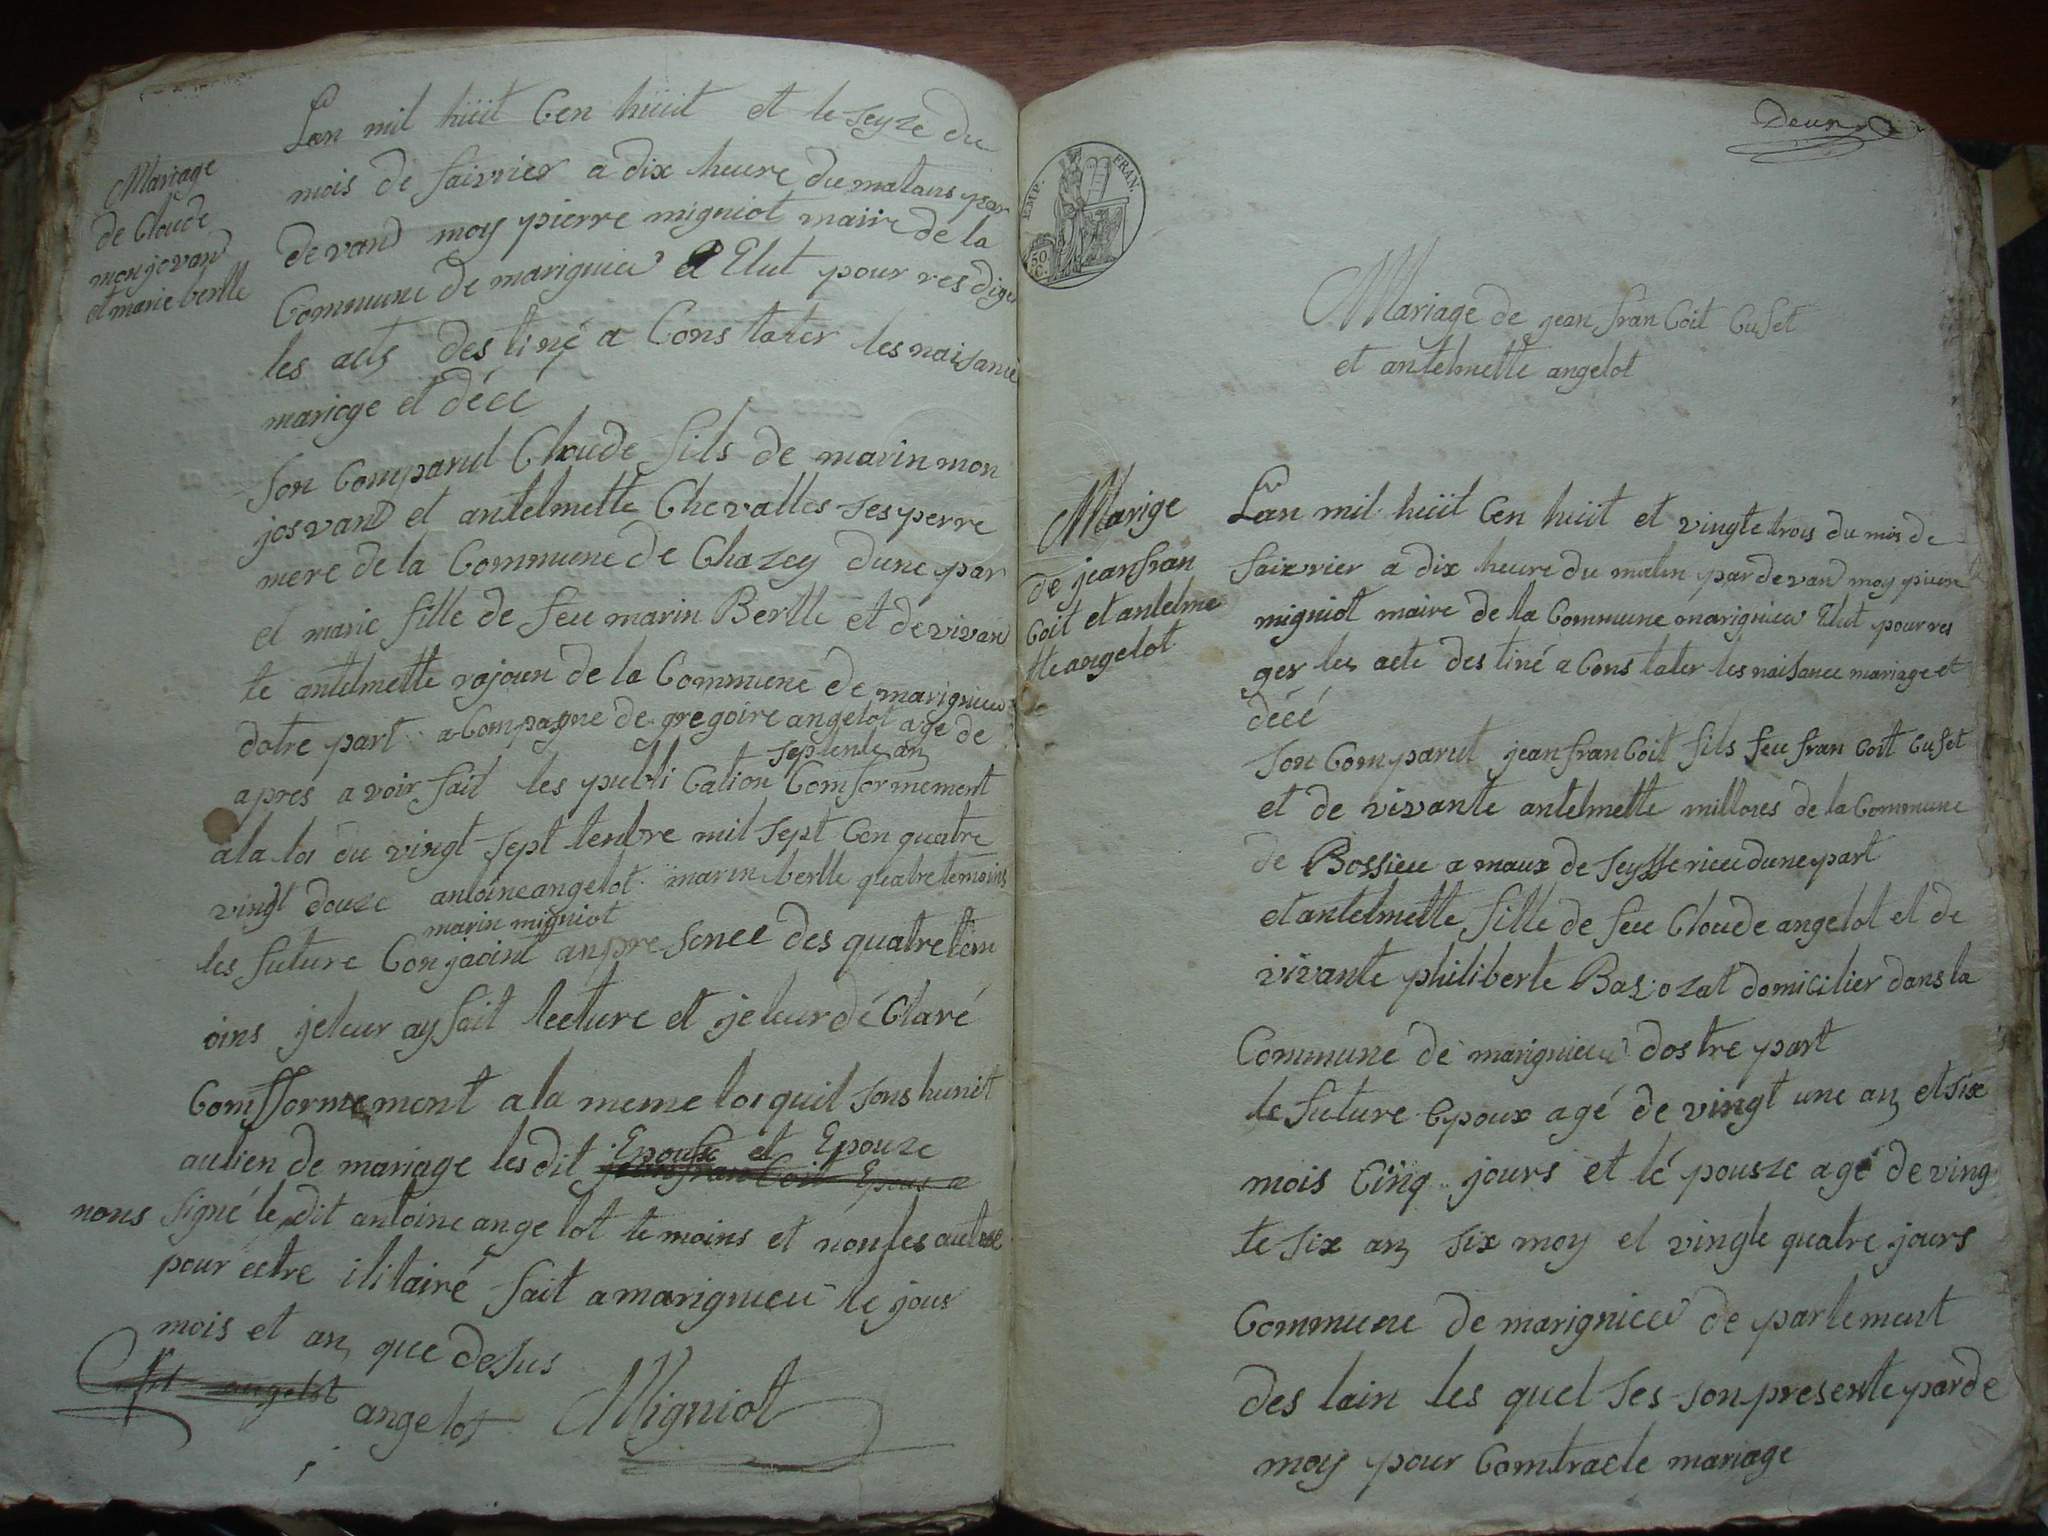 Mariage
de Claude
monjovand
et marie bertle
Lan mil hüit Cen hüit et le seyze du
mois de faivrier a dix heure du matans par
devand moy pierre migniot maiire de la
Commune de marignieu et Elut pour resdiger
les acts destiné a Constater les naisance
mariage et décé
Son Comparut Claude fils de marin mon
josvand et antelmette Chevalles ses perre
mere de la Commune de Chazey dune par
et marie fille de feu marin Bertle et de vivan
te antelmette rojoun de la Commune de marignieu
dotre part a Compagne de gregoire angelot age de
septente an
apres avoir fait les publication Comformement
a la loi du vingt sept tenbre mil sept Cen quatre
vingt douze antoine angelot marin bertle quatre temoins
marin migniot
les future Conjaoint anpresence des quatre tem
oins je leur ay fait lecture et je leur dé Claré
Comfformement a la meme loi quil sons hunit
aulien de mariage les dit Epoux et Epouze
jean fran Coit Epous e
nous signé le dit antoine angelot temoins et nonles autre
pour ectre ilitairé fait a marignieu le jour
mois et an que desus
angelot
angelot Migniot
Deux
EMP. FRAN.
50
C.
Mariage de jean fran Coit Cuset
et antelmette angelot
Marige
de jean fran
Coit et antelme
tte angelot
Lan mil hüit Cen hüit et vingte trois du mois de
faixrier a dix heure du matin par devand moy pierre
migniot maire de la Commune marignieu Elut pour res
ger les acte destiné a Constater les naisance mariage et
décé
Son Comparut jean fran Coit fils feu fran Coit Cuset
et de vivante antelmette milloxes de la Commune
de Bossieu a maux de Seysserieu dune part
et antelmette fille de feu Cloude angelot et de
vivante philiberte domicilier dans la
Commune de marignieu dostre part
le future Epoux agé de vingt une an et six
mois Cinq jours et lé pousze agé de ving
te six an six moy et vingte quatre jours
Commune de marignieu de partement
des lain les quel ses son presente par de
moy pour Comtracte mariage